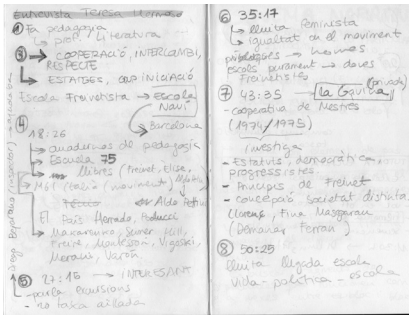 Entrevista Teresa
① Fa pedagogia
↳ prof. Literatura
③ → COOPERACIÓ, INTERCANVI,
RESPECTE
↳ ESTATGES, COP INICIACIÓ
Escola Freinetista → escola
NAVÍ
↳ Barcelona
④
18:26
→ cuadernos de pedagogía
→ Escuela 75
→ llibres (Freinet, Elise,
El País
Makarenko,
Freire, Montessori, Vigotski,
⑤ 27:15 → INTERESSANT
- parla excursions
- no tasca aïllada
⑥ 35:17
↳ lluita feminista
↳ igualtat de el moviment
pedagogs → homes
escoles purament → dones
Freinetistes
⑦ 43:35 → La Gavina (privada)
- cooperativa de Mestres
(1974/1975)
investiga
- Estatuts, democràtica,
progressistes.
- Principis de Freinet
- concepció societat distinta.
Llorenç, Fina Masgrau
(Demanar Ferran)
⑧ 50:25
lluita lligada escola
Vida - política - escola